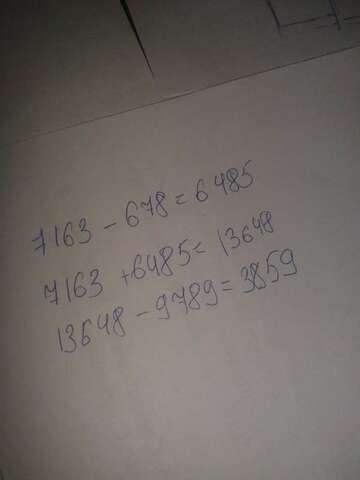 7163 - 678 = 6485
7163 + 6485 = 13648
13648 - 9789 = 3859